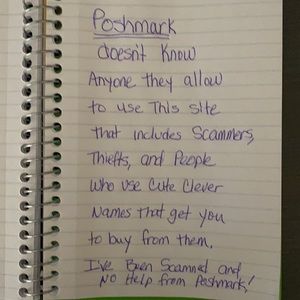 Poshmark
doesn't know
Anyone they allow
to use This site
that includes Scammers,
Thiefts, and People
Who use Cute Clever
Names That get you
to buy from them.
I've Been Scammed and
No Help from Poshmark!